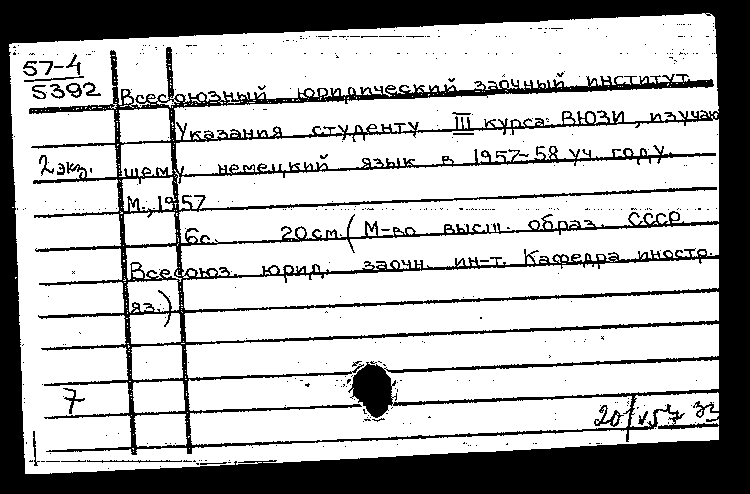 57-4
5392
Всесоюзный юридический заочный институт
Указания студенту III курса ВЮЗИ, изучаю
2 экз.
щему немецкий язык в 1957-58 уч. году.
М., 1957
6с. 20см. (М-во высш. образ. СССР
Всесоюз. юрид. заочн. ин-т. Кафедра иностр.
яз.)
7
20/